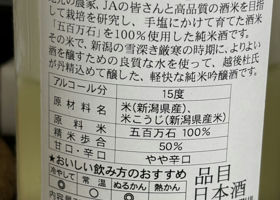 元の農家、JAの皆さんと高品質の酒米を目指
して栽培を研究し、手塩にかけて育てた酒米
「五百万石」を100%使用した純米酒です。
その米で、新潟の雪深き厳寒の時期に、よりよい
酒を醸すための良質な水を使って、越後杜氏
が丹精込めて醸した、軽快な純米吟醸酒です。
アルコール分 15度
原材料名 米(新潟県産)、
米こうじ(新潟県産米)
原料米 五百万石 100%
精米歩合 50%
甘口・辛口 やや辛口
★おいしい飲み方のおすすめ
冷やして 常温 ぬるかん 熱かん
◎ ○ ○
品目
日本酒